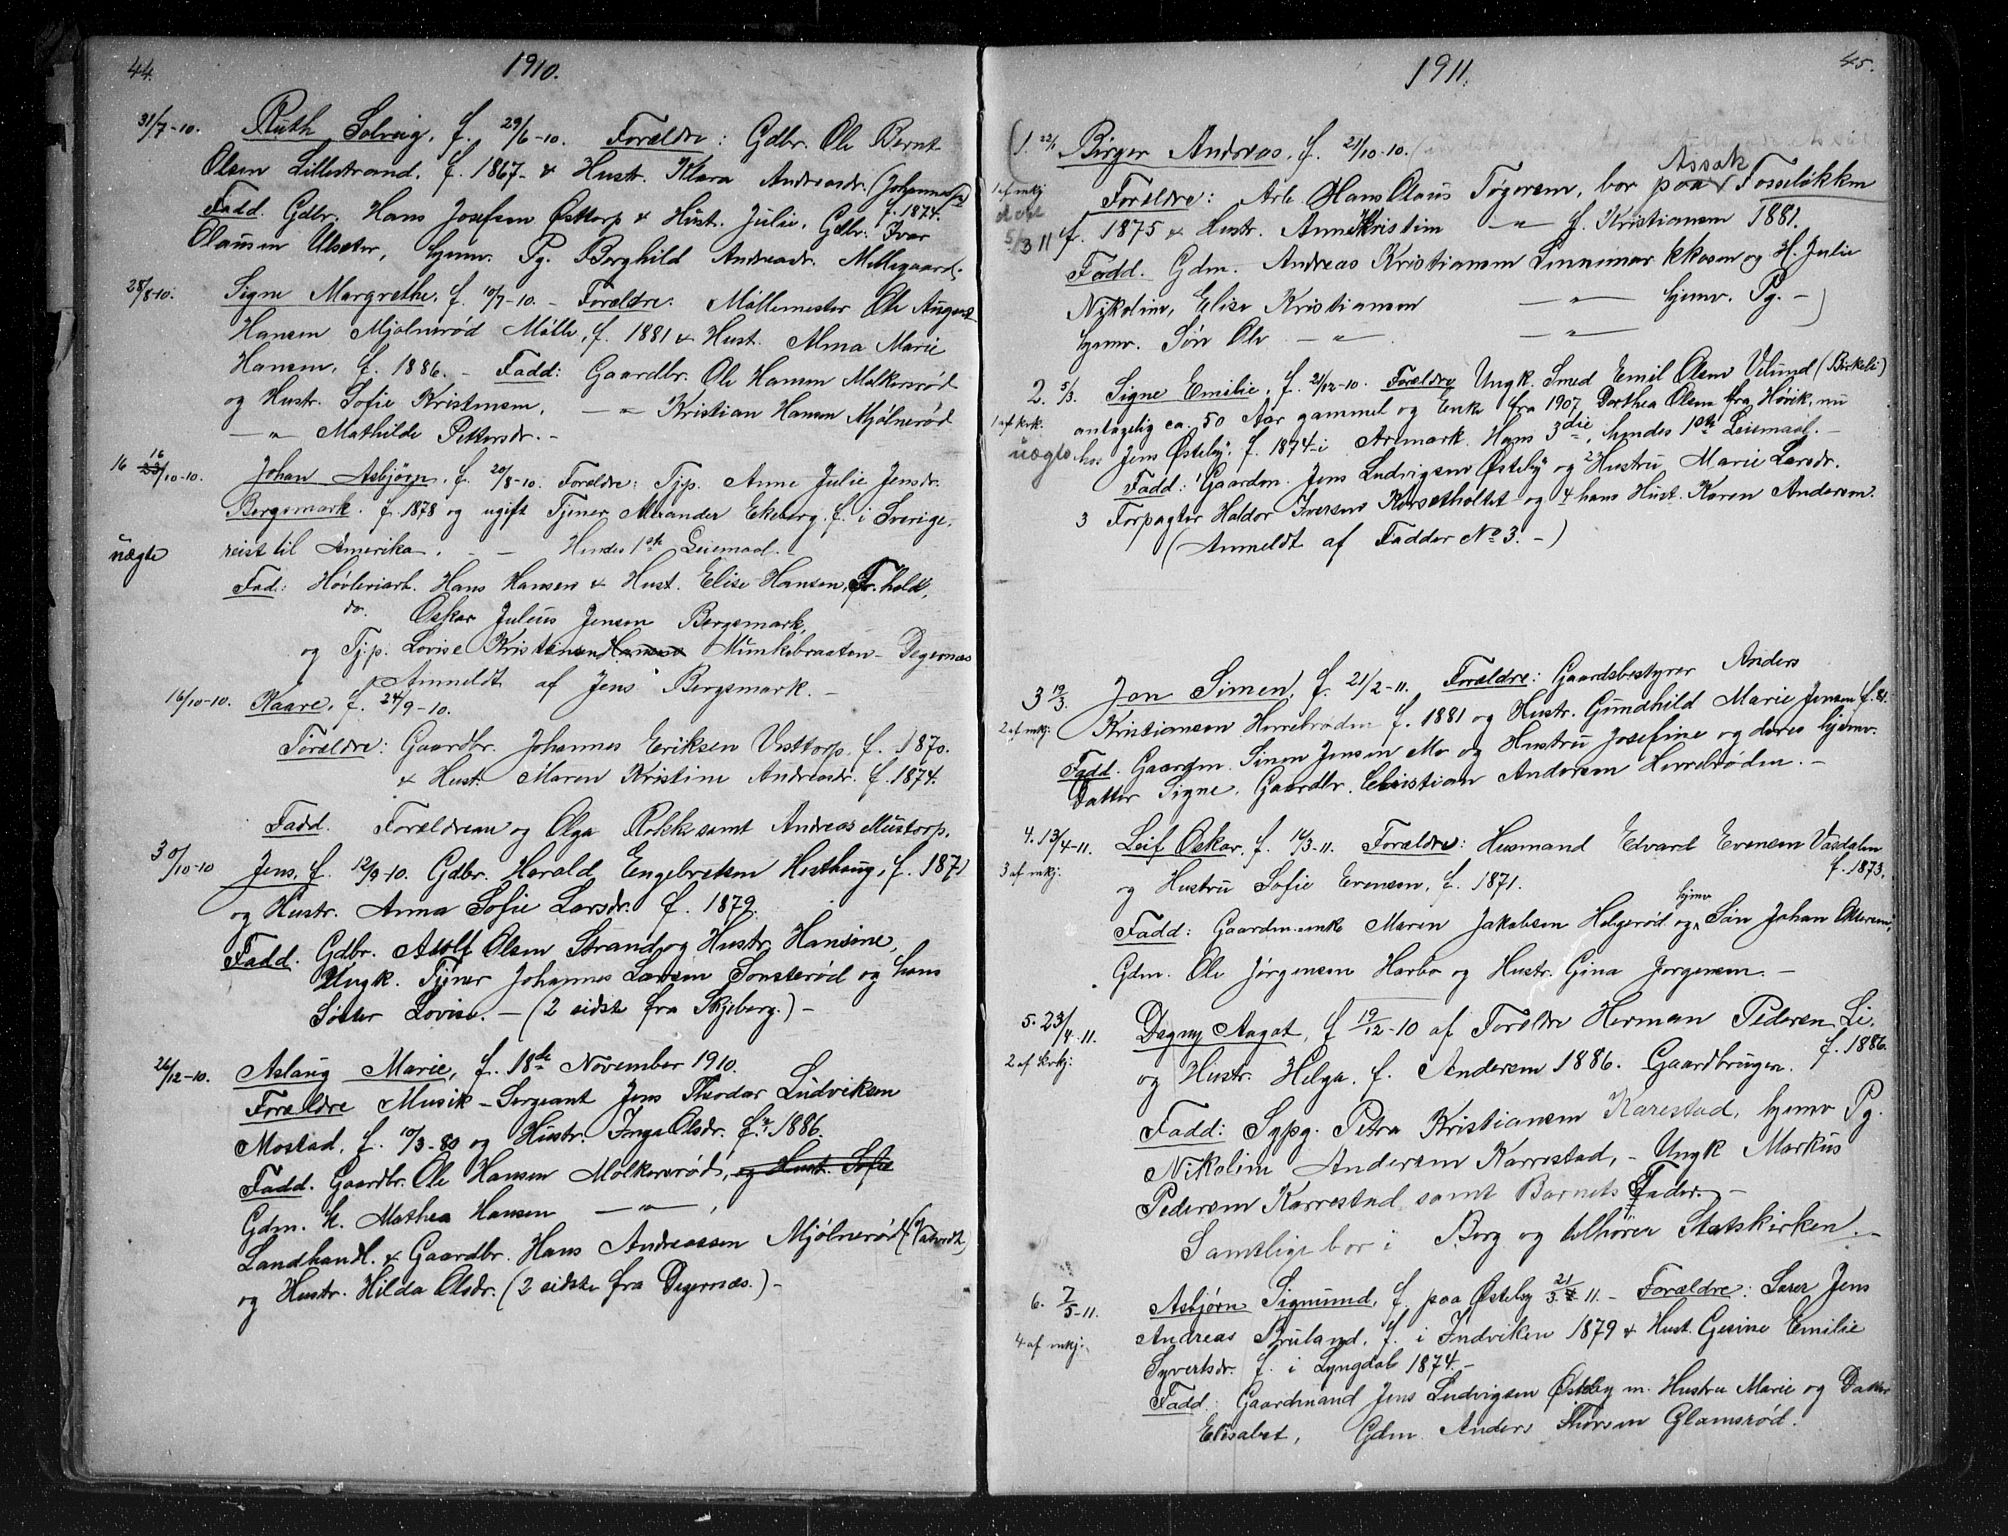 44.
1910.
31/7-10. Ruth Solveig, f. 29/6-10. Forældre: Gdbr. Ole Bernt
Olsen Lillestrand, f. 1867. & Hustr. Klara Andreasdr. (Johannes
f. 1874.
Fadd. Gdbr. Hans Josefsen Østtorp & Hust. Julie, Gdbr. Ivar
Olausen Ulseter, hjemv. Pg. Borghild Andreasdr. Mellegaard.
28/8-10. Signe Margrethe, f. 10/7-10. – Forældre: Møllemester Ole August
Hansen Mjølnerød Mølle, f. 1881 & Hust. Alma Marie
Hansen, f. 1886. – Fadd: Gaardbr. Ole Hansen Molkersrød
og Hustr. Sofie Kristensen, – " – Kristian Hansen Mjølnerød
– " – Mathilde Pettersdr. –
16 16/10-10. Johan Asbjørn, f. 20/8-10. Forældre: Tjp. Anne Julie Jensdr.
Bergsmark. f. 1878 og ugift Tjener Alexander Ekeberg. f. i Sverige,
uægte reist til Amerika. – – Hendes 1ste Leiemaal. –
Fad: Høvleriarb. Hans Hansen & Hust. Elise Hansen, Fr.hald,
do. Oskar Julius Jensen Bergsmark,
og Tj.p. Lovise Kristiansen Munkebraaten – Degernæs
Anmeldt af Jens Bergsmark. –
16/10-10. Kaare, f. 24/9-10.
Forældre: Gaardbr. Johannes Eriksen Vesttorp, f. 1870.
& Hust. Maren Kristine Andreasdr. f. 1874.
Fadd. Forældrene og Olga Rokke samt Andreas Mustorp.
30/10-10 Jens, f. 12/9-10. Gdbr. Harald Engebretsen Hesthaug, f. 1871
og Hustr. Anna Sofie Larsdr. f. 1879.
Fadd. Gdbr. Adolf Olsen Strand og Hustr. Hansine,
Ungk. Tjener Johannes Larsen Sonsterød og hans
Søster Lovise. – (2 sidste fra Skjeberg.) –
26/12-10. Aslaug Marie, f. 18de November 1910.
Forældre Musik-Sergeant Jens Theodor Ludviksen
Mostad, f. 10/3-80 og Hustr. Inga Olsdr. f. 1886.
Fadd. Gaardbr. Ole Hansen Molkersrød, og Hustr. Sofie
Gdm. k. Mathea Hansen – " – ,
Landhandl. & Gaardbr. Hans Andreassen Mjølnerød
og Hustr. Hilda Olsdr. (2 sidste fra Degernæs.) –
1911.
45.
1. 22/1 Birger Andreas, f. 21/10-10.
Assak
1 af mkj. Forældre: Arb. Hans Olaus Tøgersen, bor paa Fosseløkken
døbt 5/3 11 f. 1875 & Hustr. Anne Kristine – " – f. Kristiansen 1881.
Fadd. Gdm. Andreas Kristiansen Linnemarkkosen og H. Julie
Nikoline, Elise Kristiansen – " – hjemv. Pg. –
hjemv. Søn Ole – " – – " –
2. 5/3. Signe Emilie, f. 21/12-10. Forældre Ungk. Smed Emil Olsen Velund (Birkeli)
1 af kvk. antagelig ca. 50 Aar gammel og Enke fra 1907 Dorthea Olsen fra Høvik, nu
uægte hos Jens Østeby, f. 1874 i Aremark. Hans 3die, hendes 1ste Leiemaal. –
Fadd: Gaardm. Jens Ludvigsen Østeby og 2 Hustru Marie Larsdr.
3 Forpagter Haldor Iversen Korsetholtet og 4 hans Hust. Karen Andersen.
(Anmeldt af Fadder No 3. –)
3 19/3. Jon Simen, f. 21/2-11. Forældre: Gaardsbestyrer Anders
2 af mkj. Kristiansen Herrebrøden f. 1881 og Hustr. Gundhild Marie Jensen f. 81.
Fadd. Gaardm. Simen Jensen Mo og Hustru Josefine og deres hjemv.
Datter Signe. Gaardbr. Christian Andersen Herrebrøden. –
4. 13/4-11. Leif Oskar, f. 14/3-11. Forældre: Husmand Edvard Evensen Vasdalen
f. 1873.
3 af mkj. og Hustru Sofie Evensen, f. 1871.
hjemv
Fadd: Gaardm.enke Maren Jakobsen Helgerød og Søn Johan Ottersen,
Gdm. Ole Jørgensen Harbo og Hustr. Gina Jørgensen. –
5. 23/4-11. Dagny Aagot, f 19/12-10 af Forældre Herman Pedersen Li,
f. 1886.
2 af kvkj: og Hustr. Helga. f. Andersen 1886. Gaardbruger.
Fadd: Sypg. Petra Kristiansen Karrestad, hjemv Pg.
Nikoline Andersen Karrestad, – Ungk Markus
Pedersen Karrestad samt Barnets Fader. –
Samtlige bor i Berg og tilhører Statskirken. –
6. 7/5-11. Asbjørn Sigmund, f. paa Østeby 21/3 11. – Forældre: Lærer Jens
4 af mkj. Andreas Bruland, f. i Indviken 1879 & Hust. Gesine Emilie
Syvertsdr. f. i Lyngdal 1874. –
Fadd: Gaardmand Jens Ludvigsen Østeby m. Hustru Marie og Datter
Elisabet, Gdm. Anders Thorsen Glamsrød.